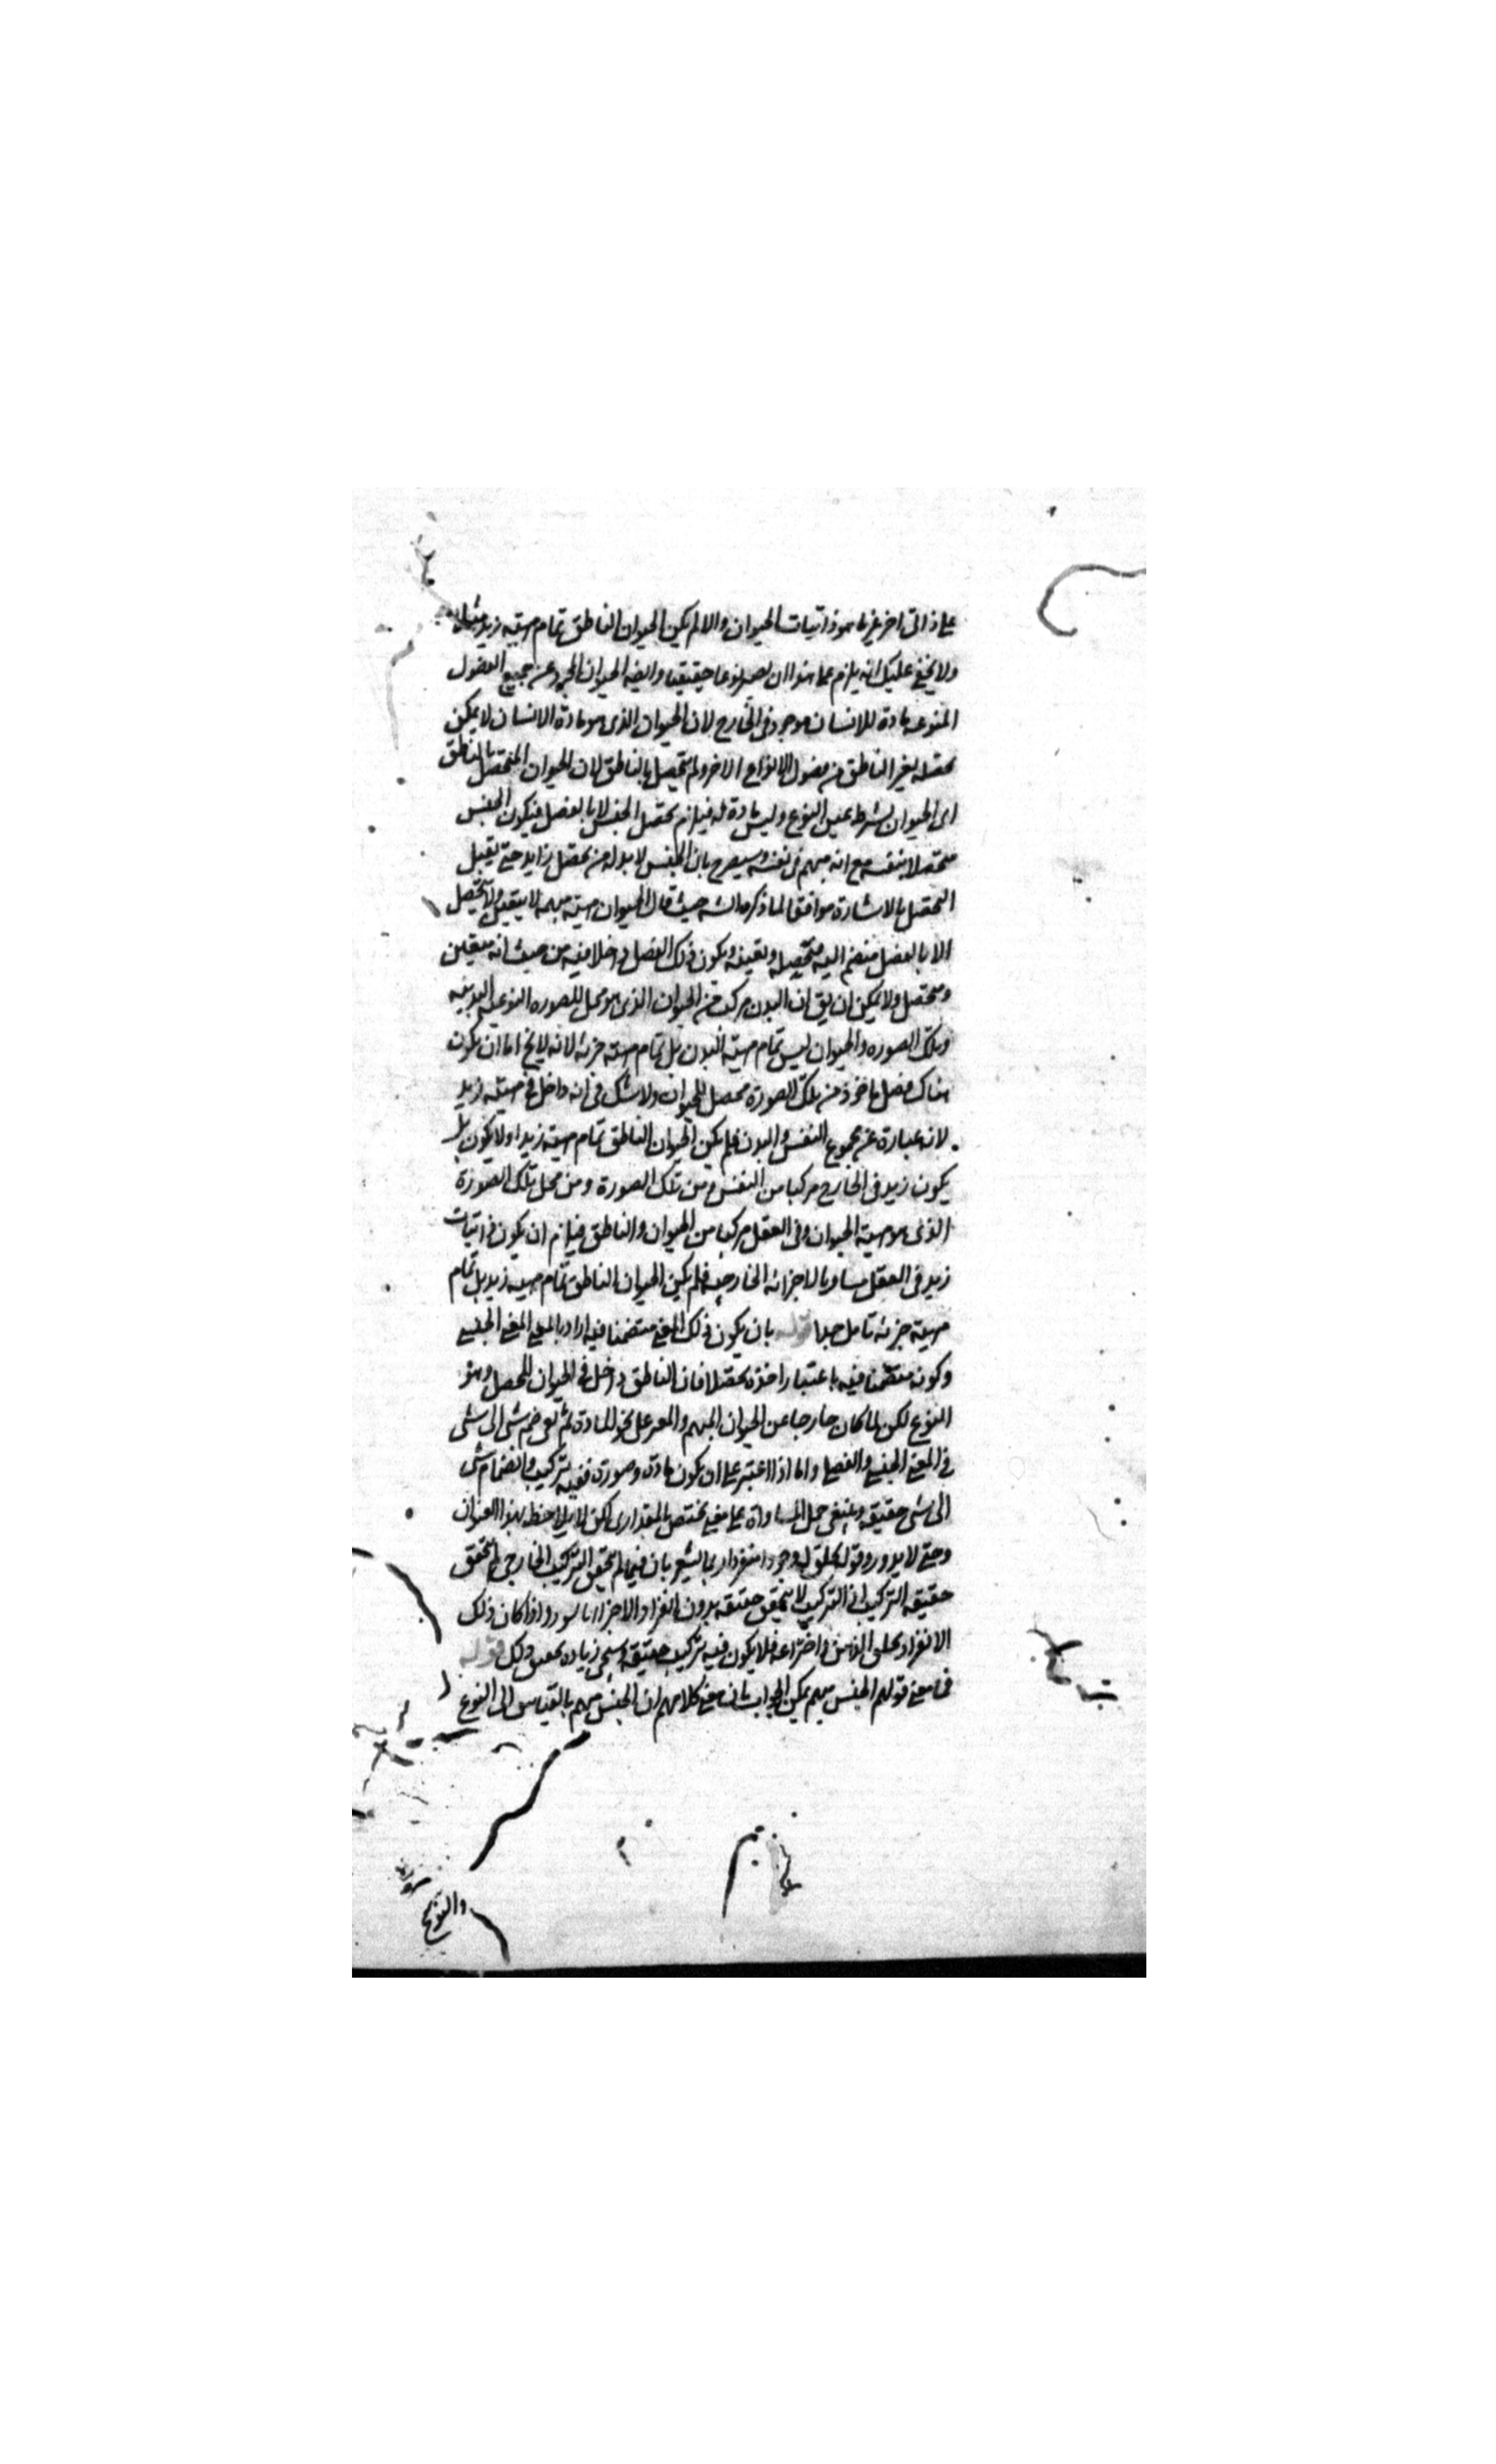 على ذاتى اخر غير ما هو ذاتيات الحيوان والا لم يكن الحيوان الناطق تمام مهيته زيد مثلا
ولا يخفى عليك انه يلزم مما هنا ان يصير نوعا حقيقيا وايضا الحيوان المجرد عن جميع الفصول
المنوعه مادة للانسان موجود فى الخارج لان الحيوان الذى هو مادة الانسان لا يمكن
تحصله بغير الناطق من فصول الانواع الاخر ولم يتحصل بالناطق لان الحيوان المتحصل بالناطق
اى الحيوان بشرط عين النوع وليس مادة له فيلزم تحصل الجنس لا بالفصل فيكون الجنس
متحصلا بنفسه مع انه مبهم فى نفسه وسيصرح بان الجنس لا بد له من محصل زايد حتى يقبل
التحصل بالاشارة موافقا لما ذكره الشه حيث قال الحيوان مهيته مبهمه لا يتعين ولا يتحصل
الا بالفصل منضم اليه فتحصله وتعينه ويكون ذلك الفصل داخلا فيه من حيث انه متعين
ومتحصل ولا يمكن ان يق ان البدن مركب من الحيوان الذى هو محل للصوره النوعيه البدنيه
وتلك الصوره والحيوان ليس تمام مهية البدن بل تمام مهيته جزئه لانه لا يخ اما ان يكون
هناك فصل ماخوذ من تلك الصورة محصل للحيوان ولا شك فى انه داخل فى مهيته زيد
لانه عبارة عن مجموع النفس والبدن فلم يكن الحيوان الناطق تمام مهيته زيد او لا يكون بل
يكون زيد فى الخارج مركبا من النفس ومن تلك الصورة ومن محل تلك الصورة
الذى هو مهية الحيوان وفى العقل مركبا من الحيوان والناطق فيلزم ان يكون ذاتيات
زيد فى العقل مساويا لاجزائه الخارجيه فلم يكن الحيوان الناطق تمام مهيته زيد بل تمام
مهيته جزئه تامل جدا قوله بان يكون ذلك المعنى متضمنا فيه اراد بالمعنى المعنى الجنسى
وكونه متضمنا فيه باعتبار اخذه محصلا فان الناطق داخل فى الحيوان المحصل وهو
النوع لكن لما كان خارجا عن الحيوان المبهم على نحو المادة لم ضم شى الى شى
فى المعنى الجنسى والفصلى واما اذا اعتبر على ان يكون مادة وصورة ففيه تركيب وانضمام شى
الى شى حقيقه وينبغى حمل المساواة على معنى يختص بالمقدارى لكن لا يلاحظ بهذا العنوان
وحتى لا يرد قوله وجود انفراد بان فيما لم يتحقق التركيب الخارجى لم يتحقق
حقيقه التركيب اذ التركيب لا يتحقق حقيقه بدون انفراد الاجزاء واذا كان ذلك
الانفراد بمحل الذهن واختراعه فلا يكون فيه تركيب حقيقه وسيجى زيادة تحقيق ذلك قوله
فى معنى قولهم الجنس مبهم يمكن الجواب بان معنى كلامهم ان الجنس مبهم بالقياس الى النوع
والنوع